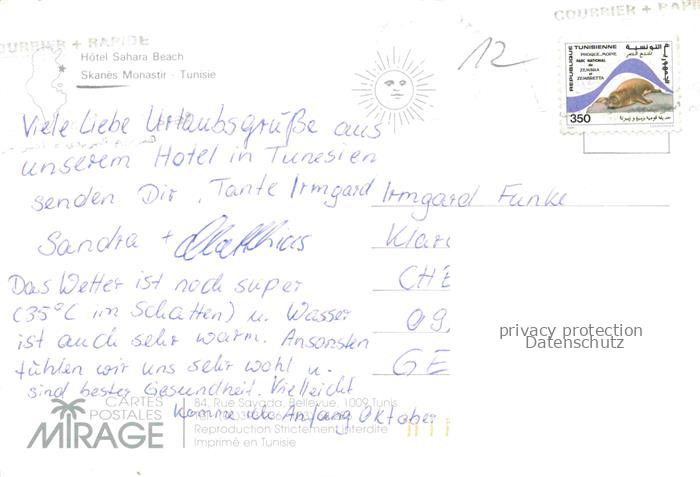 COURRIER + RAPIDE
COURRIER + RAPIDE
Hôtel Sahara Beach
Skanès Monastir - Tunisie
12
REPUBLIQUE TUNISIENNE
التونسية
PHOQUE-MOINE
PARC NATIONAL
DE
ZEMBRA
et
ZEMBRETTA
350
Viele Liebe Urlaubsgrüße aus
unserem Hotel in Tunesien
senden Dir, Tante Irmgard
Sandra + Matthias
Das Wetter ist noch super
(35°C im Schatten) u. Wasser
ist auch sehr warm. Ansonsten
fühlen wir uns sehr wohl u.
sind bester Gesundheit. Vielleicht
komme ich Anfang Oktober
Irmgard Funke
Klar
CHE
09,
GE
privacy protection
Datenschutz
CARTES
POSTALES
MIRAGE
84, Rue Sayada, Bellevue, 1009 Tunis
Reproduction Strictement Interdite
Imprimé en Tunisie